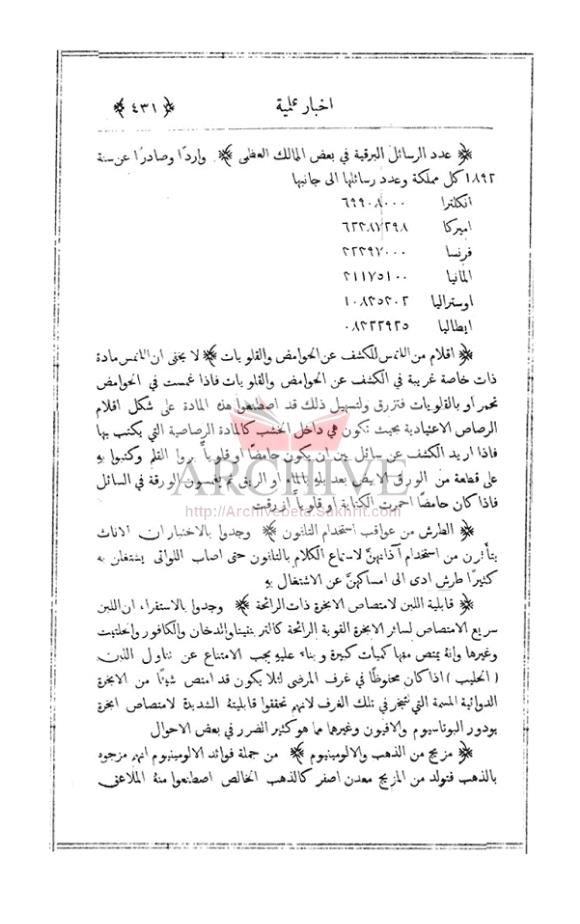 اخبار علمية ﴿ ٤٣١ ﴾
﴿ عدد الرسائل البرقية في بعض الممالك العظمى ﴾ واردًا وصادرًا عن سنة
١٨٩٢ كل مملكة وعدد رسائلها الى جانبها
انكلترا ٦٩٩٠٨٠٠٠
اميركا ٦٢٣٨٧٢٩٨
فرنسا
المانيا ٢١١٧٥١٠٠
اوستراليا
ايطاليا
﴿ اقلام من اللتمس للكشف عن الحوامض والقلويات ﴾ لا يخفى ان اللتمس مادة
ذات خاصة غريبة في الكشف عن الحوامض والقلويات فاذا غمست في الحوامض
تحمر او بالقلويات فتزرق ولتسهيل ذلك قد اصطنعوا هذه المادة على شكل اقلام
الرصاص الاعتيادية بحيث تكون هي داخل الخشب كالمادة الرصاصية التي يكتب بها
فاذا اريد الكشف عن سائل بين ان يكون حامضًا او قلويًا بروا القلم وكتبوا به
على قطعة من الورق الابيض بعد بله بالماء او الريق ثم يغمسون الورقة في السائل
فاذا كان حامضًا احمرت الكتابة او قلويًا ازرقت
﴿ الطرش من عواقب استخدام التلفون ﴾ وجدوا بالاختبار ان الاناث
يتأثرن من استخدام آذانهنَّ لاستماع الكلام بالتلفون حتى اصاب اللواتي يشتغلن به
كثيرًا طرش ادى الى امساكهنَّ عن الاشتغال به
﴿ قابلية اللبن لامتصاص الابخرة ذات الرائحة ﴾ وجدوا بالاستقراء ان اللبن
سريع الامتصاص لسائر الابخرة القوية الرائحة كالتربنتينا والدخان والكافور والحلتيت
وغيرها وانهُ يمتص منها كميات كبيرة وبناءً عليه يجب الامتناع عن تناول اللبن
( الحليب ) اذا كان محفوظًا في غرف المرضى لئلا يكون قد امتص شيئًا من الابخرة
الدوائية المسمة التي تتبخر في تلك الغرف لانهم تحققوا قابليتهُ الشديدة لامتصاص ابخرة
يودور البوتاسيوم والافيون وغيرها مما هو كثير الضرر في بعض الاحوال
﴿ مزيج من الذهب والالومينيوم ﴾ من جملة فوائد الالومينيوم انهم مزجوه
بالذهب فتولد من المزيج معدن اصفر كالذهب الخالص اصطنعوا منهُ الملاعق
ARCHIVE
http://Archivebeta.Sakhrit.com